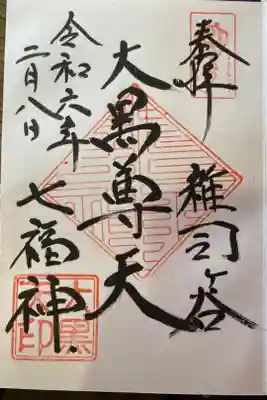 奉拝
雑司ヶ谷
大黒尊天
七福神
令和六年
二月八日